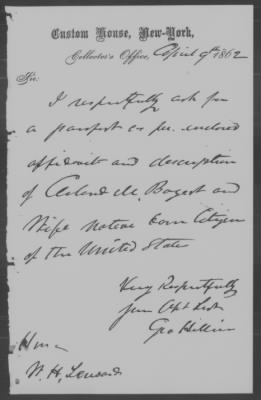 Custom House, New-York,
Collector's Office, April 9th 1862
Sir:
I respectfully ask for
a passport as per enclosed
affidavit and description
of M. Bogert and
Wife native born Citizen
of the United States
Very Respectfully
your Obt Svt
Geo
Hon
W. H. Seward